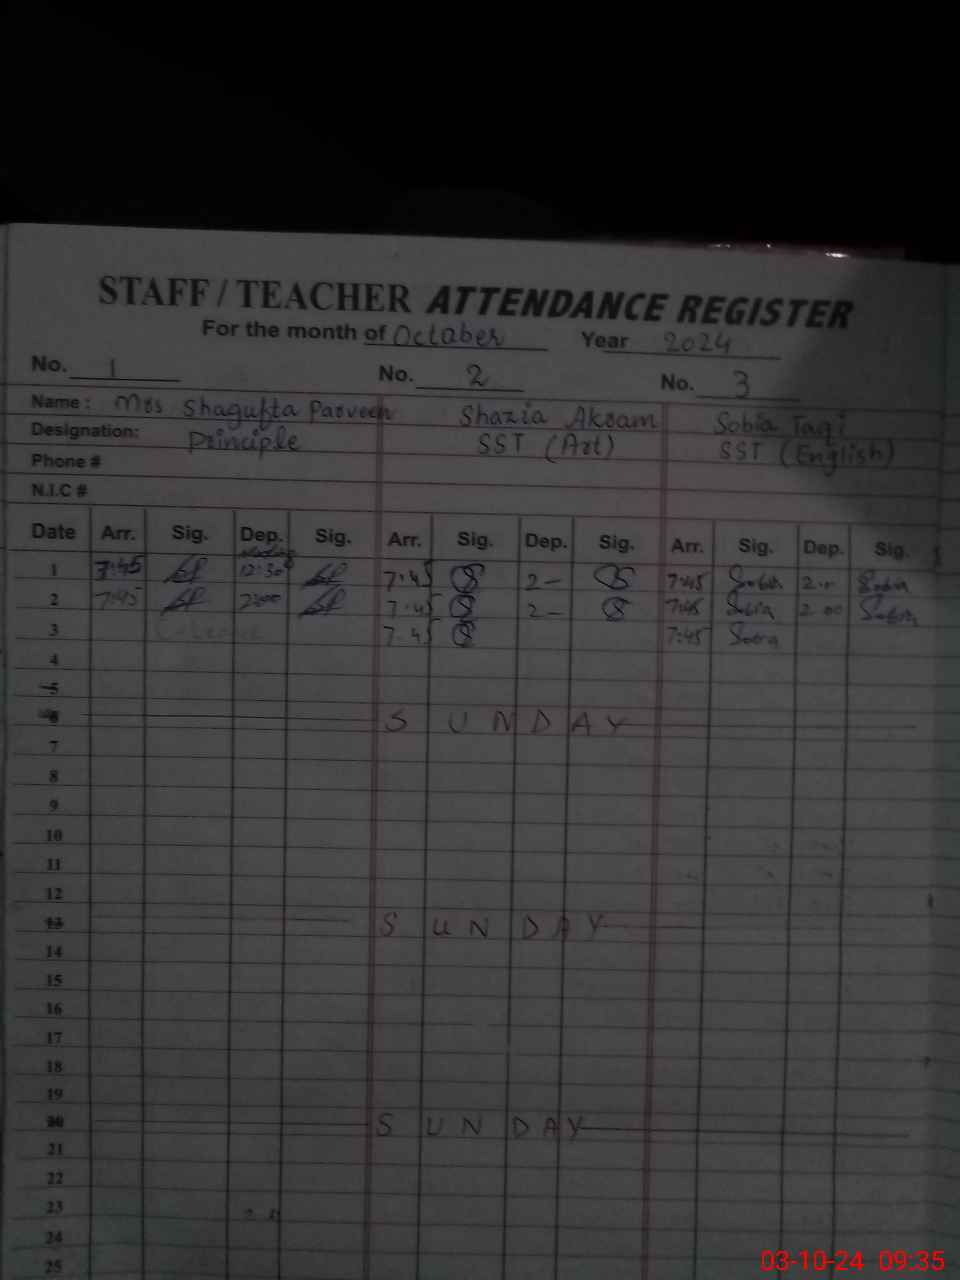 STAFF / TEACHER ATTENDANCE REGISTER
For the month of October Year 2024
No. 1 No. 2 No. 3
Name : Mrs Shagufta Parveen Shazia Akram Sobia Taqi
Designation: Principle SST (Art) SST (English)
Phone #
N.I.C #
Date Arr. Sig. Dep. Sig. Arr. Sig. Dep. Sig. Arr. Sig. Dep. Sig.
1 7:45 12:30 7:45 2- 7:45 Sobia 2. Sobia
2 7:45 2:00 7:45 2- 7:45 Sobia 2 00 Sobia
3 C-Leave 7:45 7:45 Sobia
4
5
6 SUNDAY
7
8
9
10
11
12
13 SUNDAY
14
15
16
17
18
19
20 SUNDAY
21
22
23
24
25
03-10-24 09:35